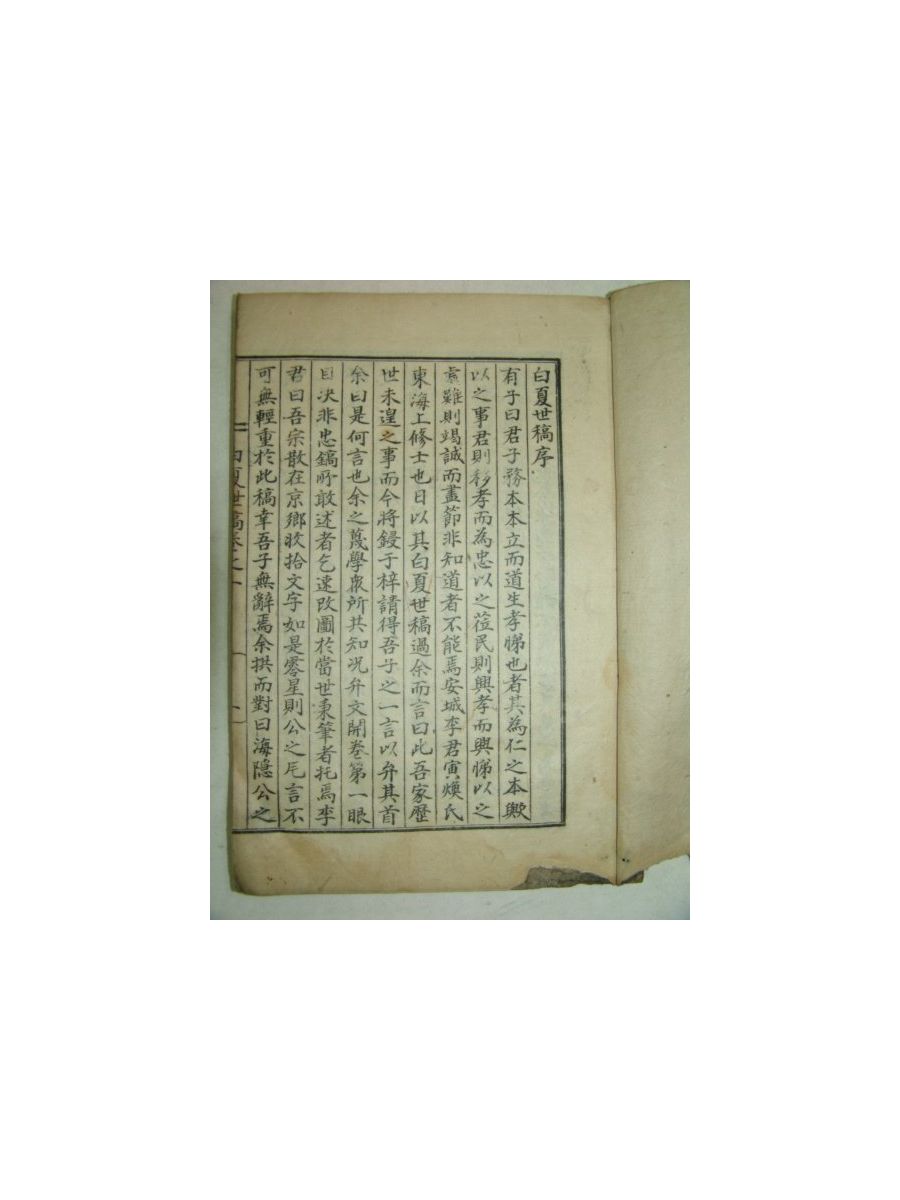 白夏世稿序
有子曰君子務本本立而道生孝悌也者其為仁之本歟
以之事君則移孝而為忠以之莅民則興孝而興悌以之
處難則竭誠而盡節非知道者不能焉安城李君寅煥氏
東海上修士也日以其白夏世稿過余而言曰此吾家歷
世未遑之事而今將鋟于梓請得吾子之一言以弁其首
余曰是何言也余之蔑學衆所共知况弁文開卷第一眼
目决非忠鎬所敢述者乞速改圖於當世秉筆者托焉李
君曰吾宗散在京鄉收拾文字如是零星則公之卮言不
可無輕重於此稿幸吾子無辭焉余拱而對曰海隱公之
白夏世稿卷之一